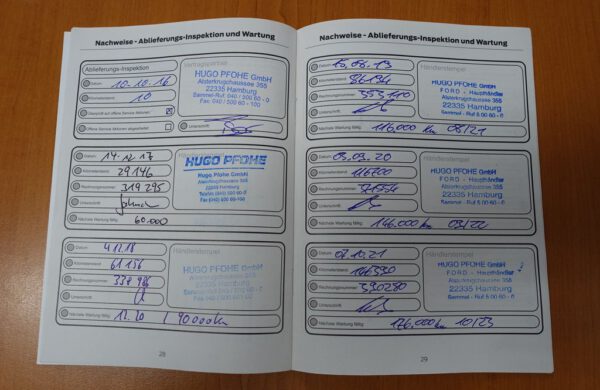 Nachweise - Ablieferungs-Inspektion und Wartung
Ablieferungs-Inspektion
Datum 10.10.16
Kilometerstand 10
Überprüft auf offene Service-Aktionen
Offene Service-Aktionen abgearbeitet
Unterschrift
Vertragspartner
HUGO PFOHE GmbH
Alsterkrugchaussee 355
22335 Hamburg
Sammel-Ruf 040 / 500 60 - 0
Fax: 040 / 500 60 - 100
Datum 14.12.17
Kilometerstand 29146
Rechnungsnummer 319295
Unterschrift
Nächste Wartung fällig 60.000
HUGO PFOHE
Hugo Pfohe GmbH
Alsterkrugchaussee 355
22335 Hamburg
Datum 4.12.18
Kilometerstand 61156
Rechnungsnummer
Unterschrift
Nächste Wartung fällig 12.20 / 90000km
Händlerstempel
HUGO PFOHE GmbH
Alsterkrugchaussee 355
22335 Hamburg
28
Nachweise - Ablieferungs-Inspektion und Wartung
Datum
Kilometerstand 86134
Rechnungsnummer
Unterschrift
Nächste Wartung fällig 116.000 km 08/21
Händlerstempel
HUGO PFOHE GmbH
FORD - Haupthändler
Alsterkrugchaussee 355
22335 Hamburg
Sammel - Ruf 5 00 60 - 0
Datum 03.09.20
Kilometerstand 116700
Rechnungsnummer
Unterschrift
Nächste Wartung fällig 146.000 km 09/22
Händlerstempel
HUGO PFOHE GmbH
FORD - Haupthändler
Alsterkrugchaussee 355
22335 Hamburg
Sammel - Ruf 5 00 60 - 0
Datum 07.10.21
Kilometerstand 146390
Rechnungsnummer 390280
Unterschrift
Nächste Wartung fällig 176.000km 10/23
Händlerstempel
HUGO PFOHE GmbH
FORD - Haupthändler
Alsterkrugchaussee 355
22335 Hamburg
Sammel - Ruf 5 00 60 - 0
29